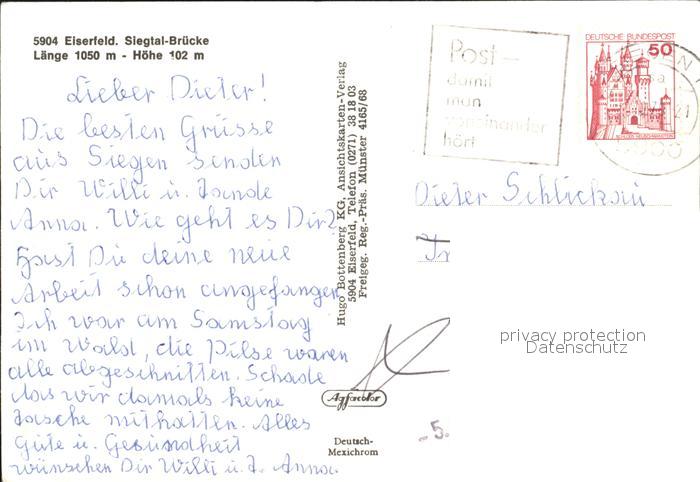 5904 Eiserfeld. Siegtal-Brücke
Länge 1050 m - Höhe 102 m
Lieber Dieter!
Die besten Grüsse
aus Siegen senden
Dir Willi u. Tande
Anna. Wie geht es Dir?
Hast Du deine neue
Arbeit schon angefangen
Ich war am Samstag
im Wald, die Pilse waren
alle abgeschnitten. Schade
das wir damals keine
Tasche mithatten. Alles
Gute u. Gesundheit
wünschen Dir Willi u. T. Anna.
Hugo Bottenberg KG, Ansichtskarten-Verlag
5904 Eiserfeld, Telefon (0271) 38 18 03
Freigeg. Reg.-Präs. Münster 4165/68
Agfacolor
Deutsch-
Mexichrom
Post -
damit
man
voneinander
hört
DEUTSCHE BUNDESPOST
50
SCHLOSS NEUSCHWANSTEIN
Dieter Schlickau
- 5.
privacy protection
Datenschutz